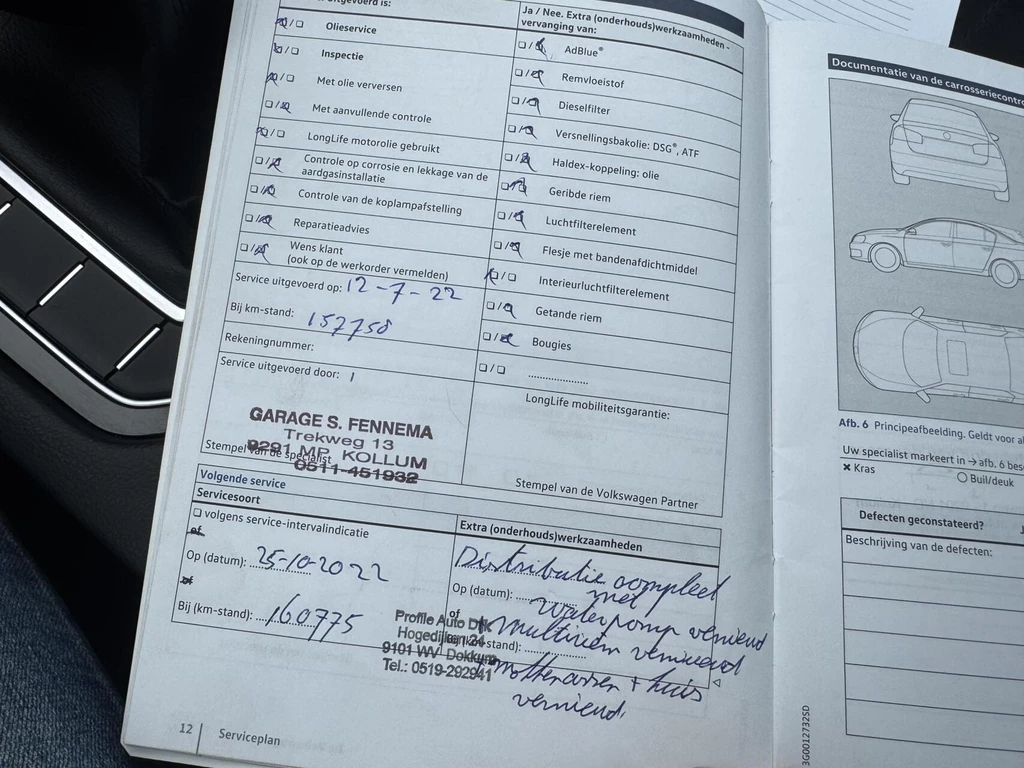 itgevoerd is:
☐/☐ Olieservice
☐/☐ Inspectie
☐/☐ Met olie verversen
☐/☐ Met aanvullende controle
☐/☐ LongLife motorolie gebruikt
☐/☐ Controle op corrosie en lekkage van de
aardgasinstallatie
☐/☐ Controle van de koplampafstelling
☐/☐ Reparatieadvies
☐/☐ Wens klant
(ook op de werkorder vermelden)
Service uitgevoerd op: 12-7-22
Bij km-stand: 157758
Rekeningnummer:
Service uitgevoerd door:
GARAGE S. FENNEMA
Trekweg 13
9291 MP KOLLUM
0511-451932
Stempel van de specialist
Ja / Nee. Extra (onderhouds)werkzaamheden -
vervanging van:
☐/☐ AdBlue®
☐/☐ Remvloeistof
☐/☐ Dieselfilter
☐/☐ Versnellingsbakolie: DSG®, ATF
☐/☐ Haldex-koppeling: olie
☐/☐ Geribde riem
☐/☐ Luchtfilterelement
☐/☐ Flesje met bandenafdichtmiddel
☐/☐ Interieurluchtfilterelement
☐/☐ Getande riem
☐/☐ Bougies
☐/☐ .....................
LongLife mobiliteitsgarantie:
Stempel van de Volkswagen Partner
Volgende service
Servicesoort
☐ volgens service-intervalindicatie
of
Op (datum): 25-10-2022
of
Bij (km-stand): 160775
Extra (onderhouds)werkzaamheden
Distributie compleet
Op (datum): met
Waterpomp vernieuwd
of
+ multiriem vernieuwd
-stand):
+ huis
vernieuwd.
Profile Auto
9101 WV Dokkum
Tel.: 0519-292941
12 Serviceplan
Documentatie van de carrosseriecontro
Afb. 6 Principeafbeelding. Geldt voor al
Uw specialist markeert in → afb. 6 besc
✖ Kras
○ Buil/deuk
Defecten geconstateerd? J
Beschrijving van de defecten:
3G0012732SD